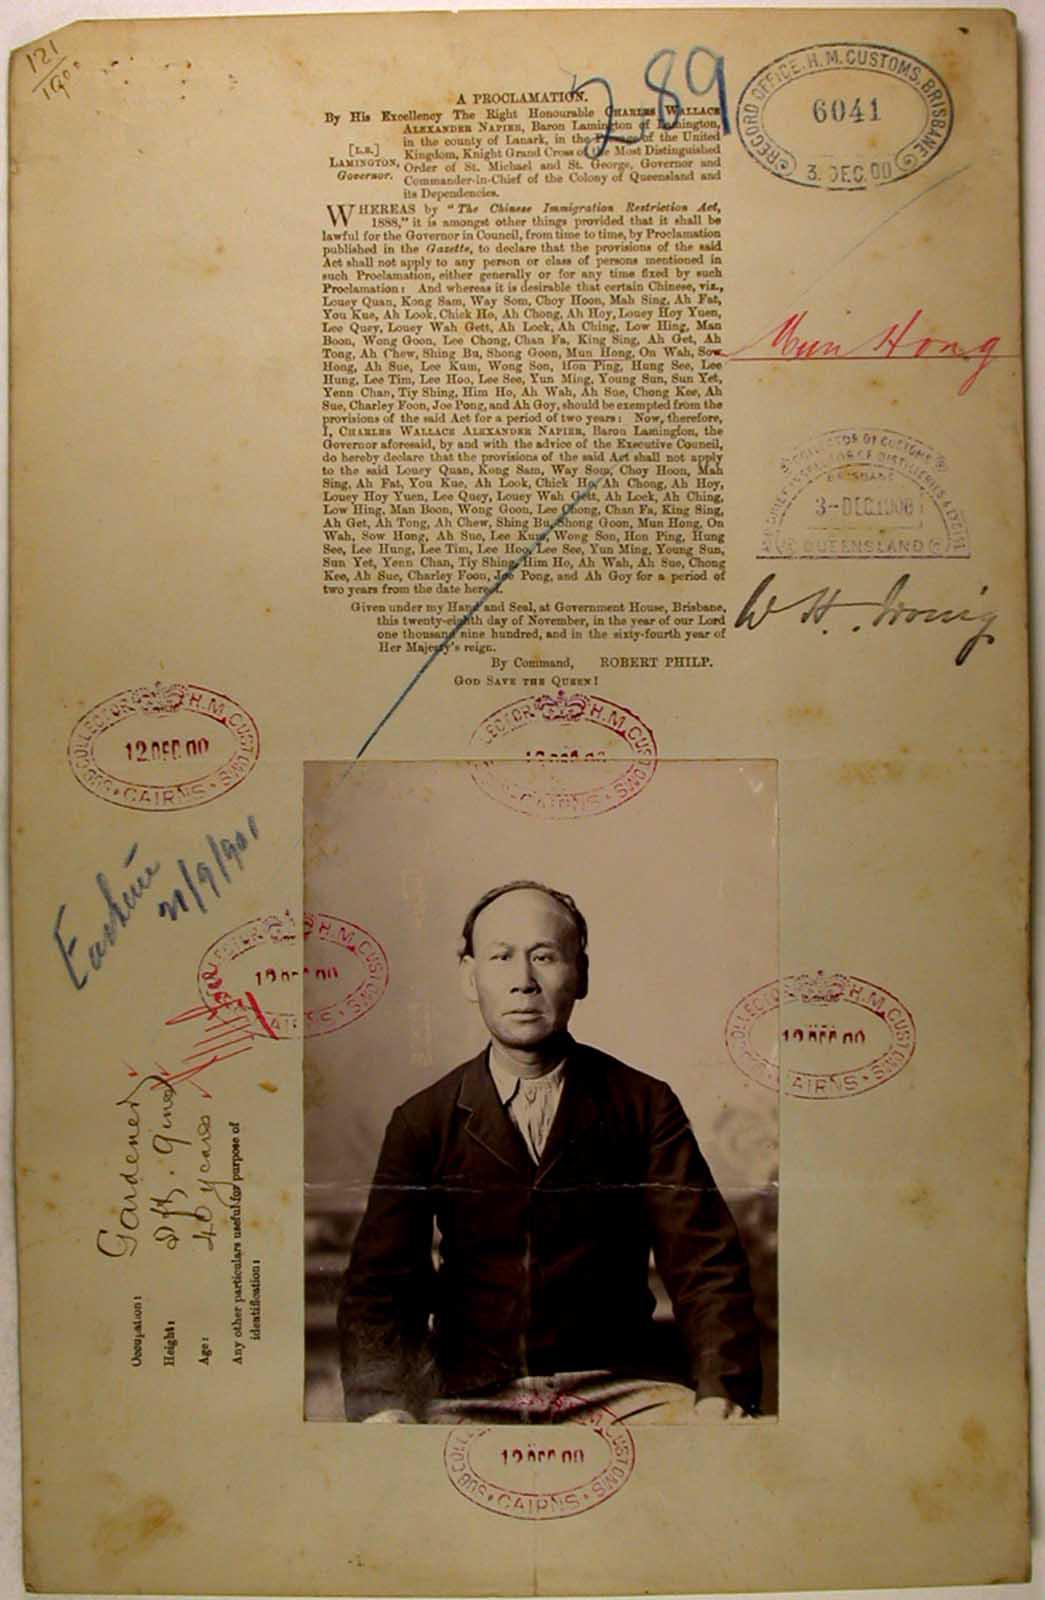 121
1900
A PROCLAMATION.
289
RECORD OFFICE, H. M. CUSTOMS, BRISBANE
6041
3. DEC. 00
By His Excellency The Right Honourable CHARLES WALLACE
ALEXANDER NAPIER, Baron Lamington of Lamington,
in the county of Lanark, in the Peerage of the United
[L.S.] Kingdom, Knight Grand Cross of the Most Distinguished
LAMINGTON, Order of St. Michael and St. George, Governor and
Governor. Commander-in-Chief of the Colony of Queensland and
its Dependencies.
WHEREAS by "The Chinese Immigration Restriction Act,
1888," it is amongst other things provided that it shall be
lawful for the Governor in Council, from time to time, by Proclamation
published in the Gazette, to declare that the provisions of the said
Act shall not apply to any person or class of persons mentioned in
such Proclamation, either generally or for any time fixed by such
Proclamation: And whereas it is desirable that certain Chinese, viz.,
Louey Quan, Kong Sam, Way Som, Choy Hoon, Mah Sing, Ah Fat,
You Kue, Ah Look, Chick Ho, Ah Chong, Ah Hoy, Louey Hoy Yuen,
Lee Quey, Louey Wah Gett, Ah Lock, Ah Ching, Low Hing, Man
Boon, Wong Goon, Lee Chong, Chan Fa, King Sing, Ah Get, Ah
Tong, Ah Chew, Shing Bu, Shong Goon, Mun Hong, On Wah, Sow
Hong, Ah Sue, Lee Kum, Wong Son, Hon Ping, Hung See, Lee
Hung, Lee Tim, Lee Hoo, Lee See, Yun Ming, Young Sun, Sun Yet,
Yenn Chan, Tiy Shing, Him Ho, Ah Wah, Ah Sue, Chong Kee, Ah
Sue, Charley Foon, Joe Pong, and Ah Goy, should be exempted from the
provisions of the said Act for a period of two years: Now, therefore,
I, CHARLES WALLACE ALEXANDER NAPIER, Baron Lamington, the
Governor aforesaid, by and with the advice of the Executive Council,
do hereby declare that the provisions of the said Act shall not apply
to the said Louey Quan, Kong Sam, Way Som, Choy Hoon, Mah
Sing, Ah Fat, You Kue, Ah Look, Chick Ho, Ah Chong, Ah Hoy,
Louey Hoy Yuen, Lee Quey, Louey Wah Gett, Ah Lock, Ah Ching,
Low Hing, Man Boon, Wong Goon, Lee Chong, Chan Fa, King Sing,
Ah Get, Ah Tong, Ah Chew, Shing Bu, Shong Goon, Mun Hong, On
Wah, Sow Hong, Ah Sue, Lee Kum, Wong Son, Hon Ping, Hung
See, Lee Hung, Lee Tim, Lee Hoo, Lee See, Yun Ming, Young Sun,
Sun Yet, Yenn Chan, Tiy Shing, Him Ho, Ah Wah, Ah Sue, Chong
Kee, Ah Sue, Charley Foon, Joe Pong, and Ah Goy for a period of
two years from the date hereof.
Given under my Hand and Seal, at Government House, Brisbane,
this twenty-eighth day of November, in the year of our Lord
one thousand nine hundred, and in the sixty-fourth year of
Her Majesty's reign.
By Command, ROBERT PHILP.
GOD SAVE THE QUEEN!
Mun Hong
COLLECTOR OF CUSTOMS
INSPECTOR OF DISTILLERIES
BRISBANE
3-DEC.1900
QUEENSLAND
W H.
SUB COLLECTOR H.M. CUSTOMS
12 DEC 00
CAIRNS
COLLECTOR H.M. CUSTOMS
CAIRNS
21/9/901
H.M. CUSTOMS
COLLECTOR H.M. CUSTOMS
12 DEC 00
CAIRNS
Occupation: Gardener
Height: 5 ft. 9 ins
Age: 40 years
Any other particulars useful for purpose of
identification:
SUB COLLECTOR H.M. CUSTOMS
12 DEC 00
CAIRNS